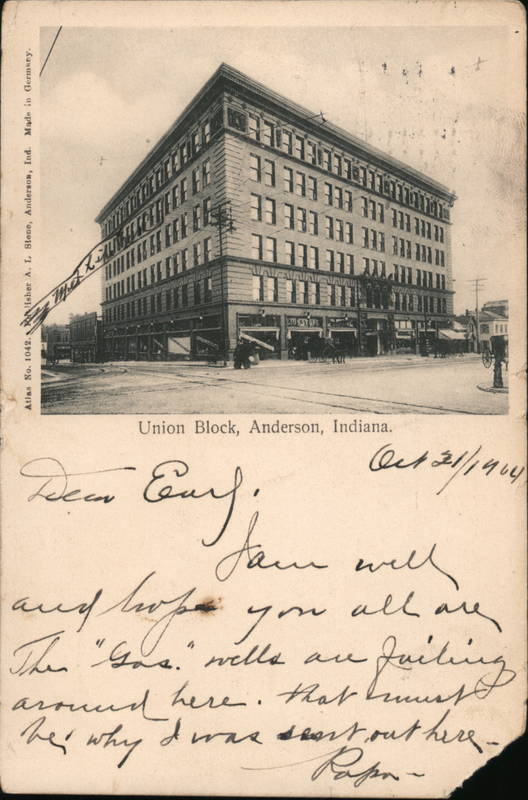 Atlas No. 1042. Publisher A. L. Stone, Anderson, Ind. Made in Germany.
Union Block, Anderson, Indiana.
Oct 21/1904
Dear Earl.
I am well
and hope you all are
The "Gas." wells are failing
around here. that must
be why I was sent out here -
Papa -